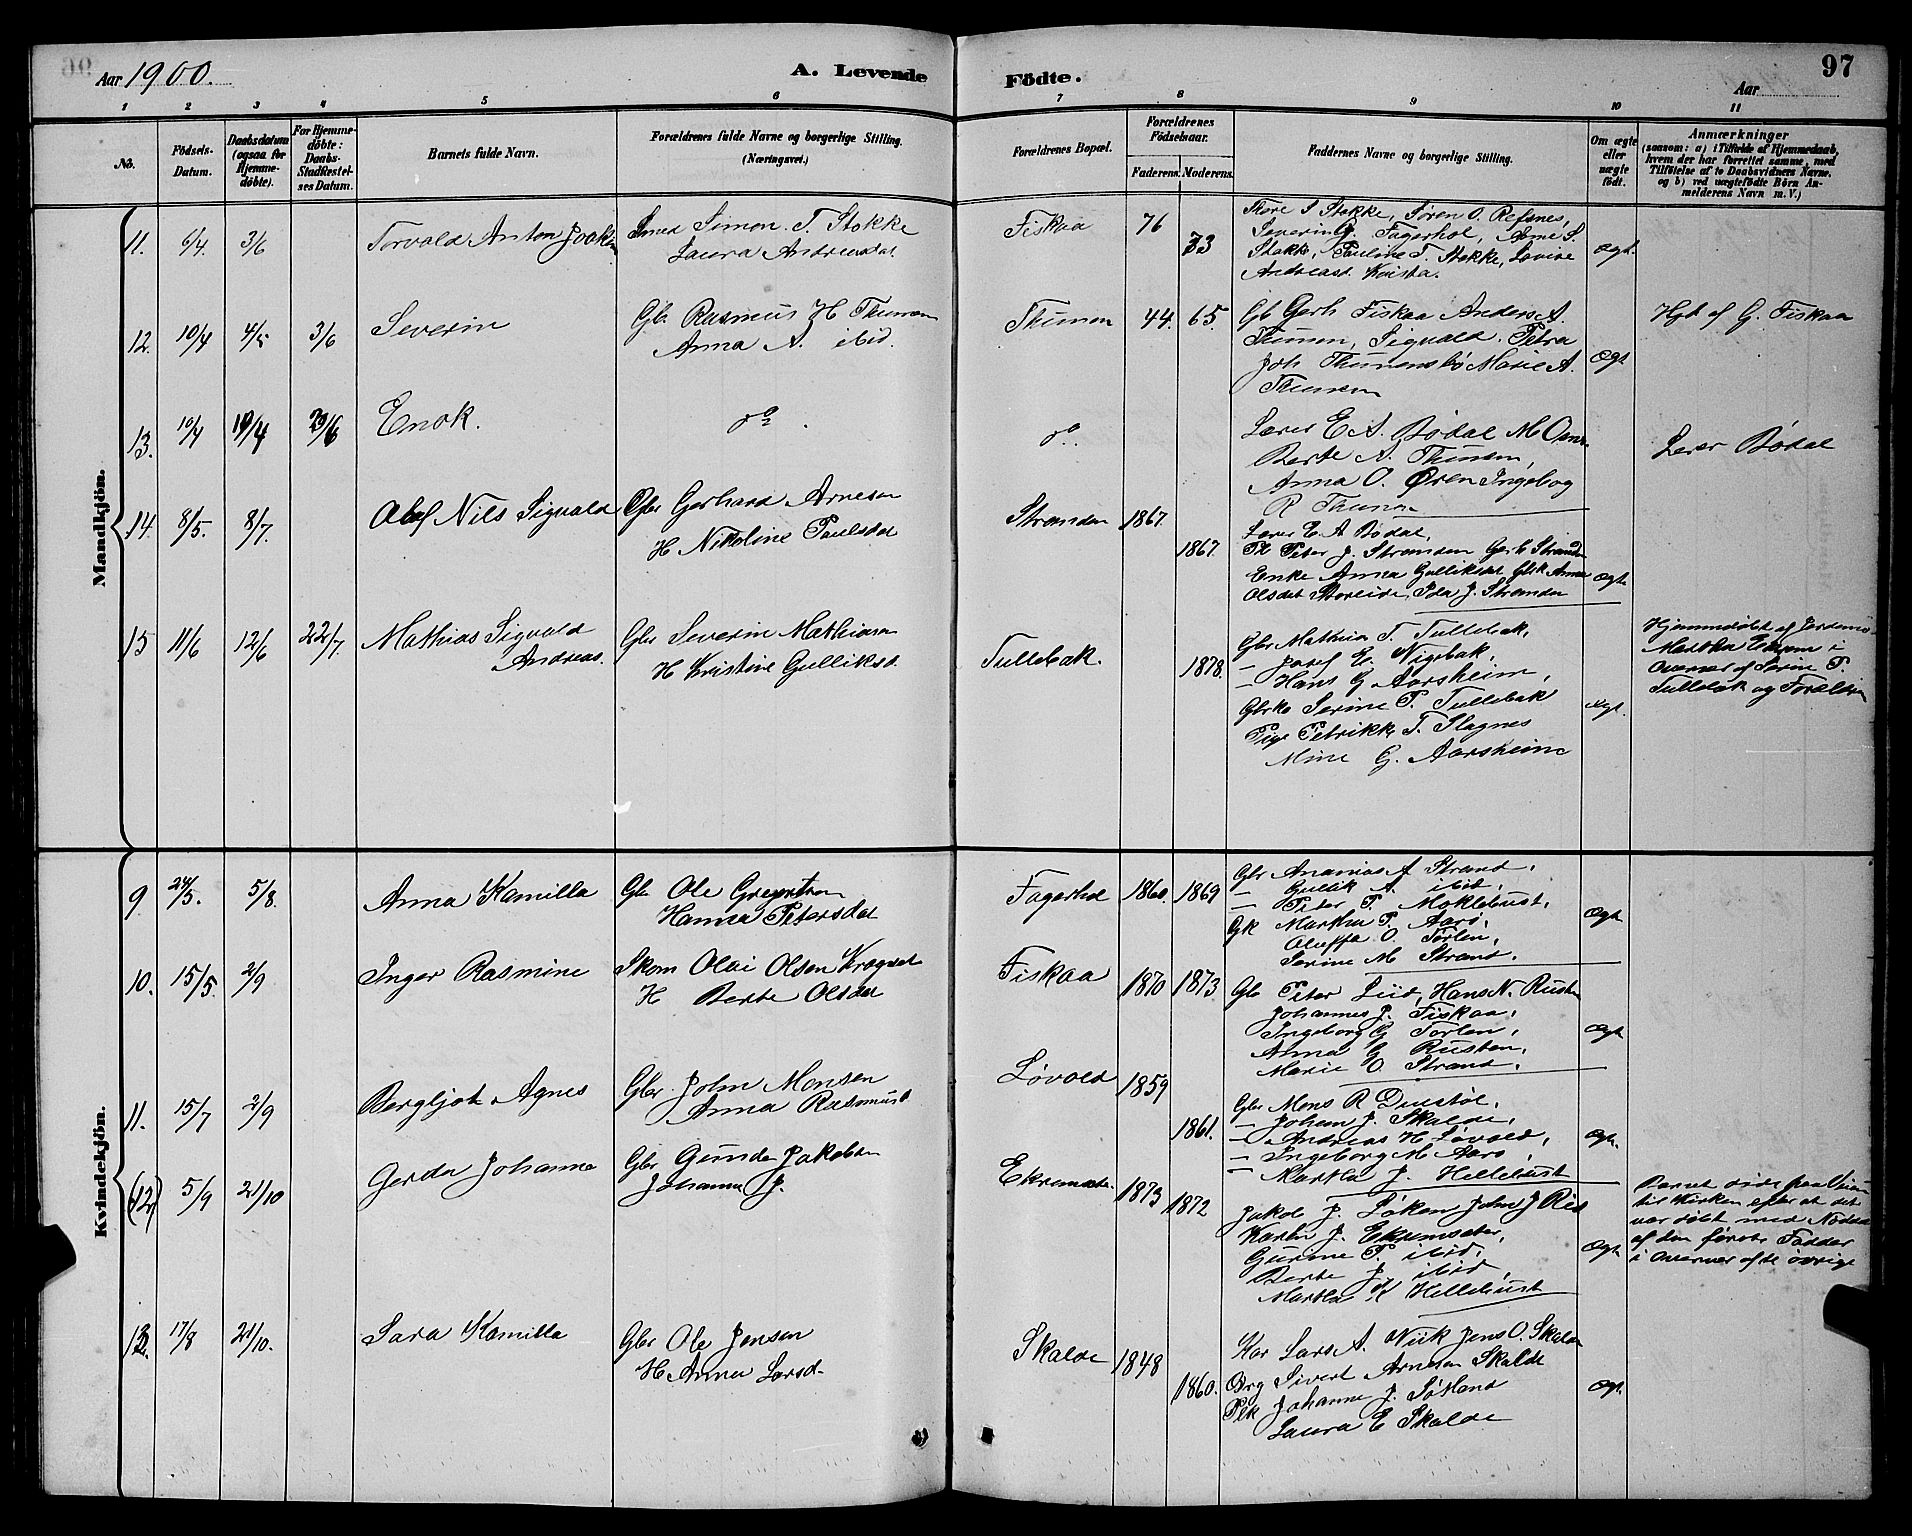 96
Aar 1900.
A. Levende
Födte.
97
Aar
1 2 3 4 5 6 7 8 9 10 11
No.
Födsels-Datum.
Daabsdatum (ogsaa for Hjemmedöbte).
For Hjemmedöbte: Daabs-Stadfæstelses Datum.
Barnets fulde Navn.
Forældrenes fulde Navne og borgerlige Stilling. (Næringsvei.)
Forældrenes Bopæl.
Forældrenes Födselsaar.
Faderens. Moderens.
Faddernes Navne og borgerlige Stilling.
Om ægte eller uægte födt.
Anmærkninger
(saasom: a) i Tilfælde af Hjemmedaab, hvem der har forrettet samme, med Tilföielse af to Daabsvidners Navne. og b) ved uægtefödte Börn Anmelderens Navn m. V.)
Mandkjön.
11. 6/4. 3/6 Torvald Anton Joakim
Smed Simon T. Stokke
Laura Andreasdat
Fiskaa 76 73
Tore S Stokke, Søren O. Refsnes,
Severin G. Fagerhol, Arne S.
Stokke, Pauline T. Stokke, Lovise
Andreasd Krista.
Ægt.
12. 10/4 4/5 3/6 Severin
Gb. Rasmus H Thunem
Anna A. ibid.
Thunem 44. 65.
Gb Gerh Fiskaa Anders A.
Thunem, Sigvald, Petra
Joh Thunem Marie A.
Thunem
Ægt
Hgt af G. Fiskaa
13. 10/4 19/4 Enok.
do
do
Lærer E. A. Bødal M
Berte A. Thunem,
Anna O. Øren Ingebog
R Thunem
Lærer Bødal
14. 8/5. 8/7. Olaf Nils Sigvald
Gbr Gerhard Arnesen
H Nikoline Paulsdat
Stranden 1867. 1867.
Lærer E. A Bødal,
Peter J. Stranden Gerh Strand
Enke Anna Gulliksdat Anna
Olsdat Storeide, Ida J. Stranden
Ægt
15 11/6 12/6 22/7 Mathias Sigvald
Andreas.
Gbr Severin Mathiasen
H Kristine Gulliksd.
Tullebak. 1878.
Gbr Mathias T. Tullebak,
- Josef E. Nigebak,
- Hans G Aarsheim,
Gbrko Serine P. Tullebak
Pige Petrikke T. Slagnes
Mine G. Aarsheim
Ægt.
Hjemmedøbt af Jordemo
Martha i
Overvær af Serine P.
Tullebak og Foræld
Kvindekjön.
9. 24/5. 5/8. Anna Kamilla
Gbr Ole
Hanna Petersdat
Fagerhol 1860. 1869
Gbr Ananias A Strand.
- Gullik A. ibid.
- Peter P. Moklebust,
Gk Martha P. Aarø,
Oluffa O. Torlen,
Serine M Strand.
Ægt
10. 15/5. 2/9 Inger Rasmine
Skom Olai Olsen
H Berte Olsdat
Fiskaa 1870 1873
Gb Peter Liid, Hans N. Rusten
Johannes J. Fiskaa,
Ingeborg G Torlen,
Anna G Rusten,
Marie O Strand.
Ægt
11. 15/7 2/9 Bergljot Agnes
Gbr John Monsen
Anna Rasmusd
Løvold 1859 1861.
Gbr Mons R Duestøl,
- Johan J. Skalde,
- Andreas H Løvold,
- Ingeborg M Aarø,
- Martha J. Hellebust
Ægt.
(12) 5/9 21/10 Gerda Johanne
Gbr Gunder Jakobsen
Johanne J.
Ekremsæter 1873 1872
Jakob J. Løken John J
Karen J. Ekremsæter,
Gurine P. ibid,
Berte J. ibid,
Martha K Hellebust
Ægt
Barnet døde paa Veien
til Kirken efter at det
var døbt med Nøddaab
af den første Fadder
i Overvær af de øvrige
13. 17/8 21/10. Sara Kamilla
Gbr Ole Jensen
H Anna Larsd.
Skalde 1848 1860.
Kar Lars A. Vik Jens O. Skalde
Gbrg Sivert Arnesen Skalde
Johanne J.
Laura E Skalde
Ægt.